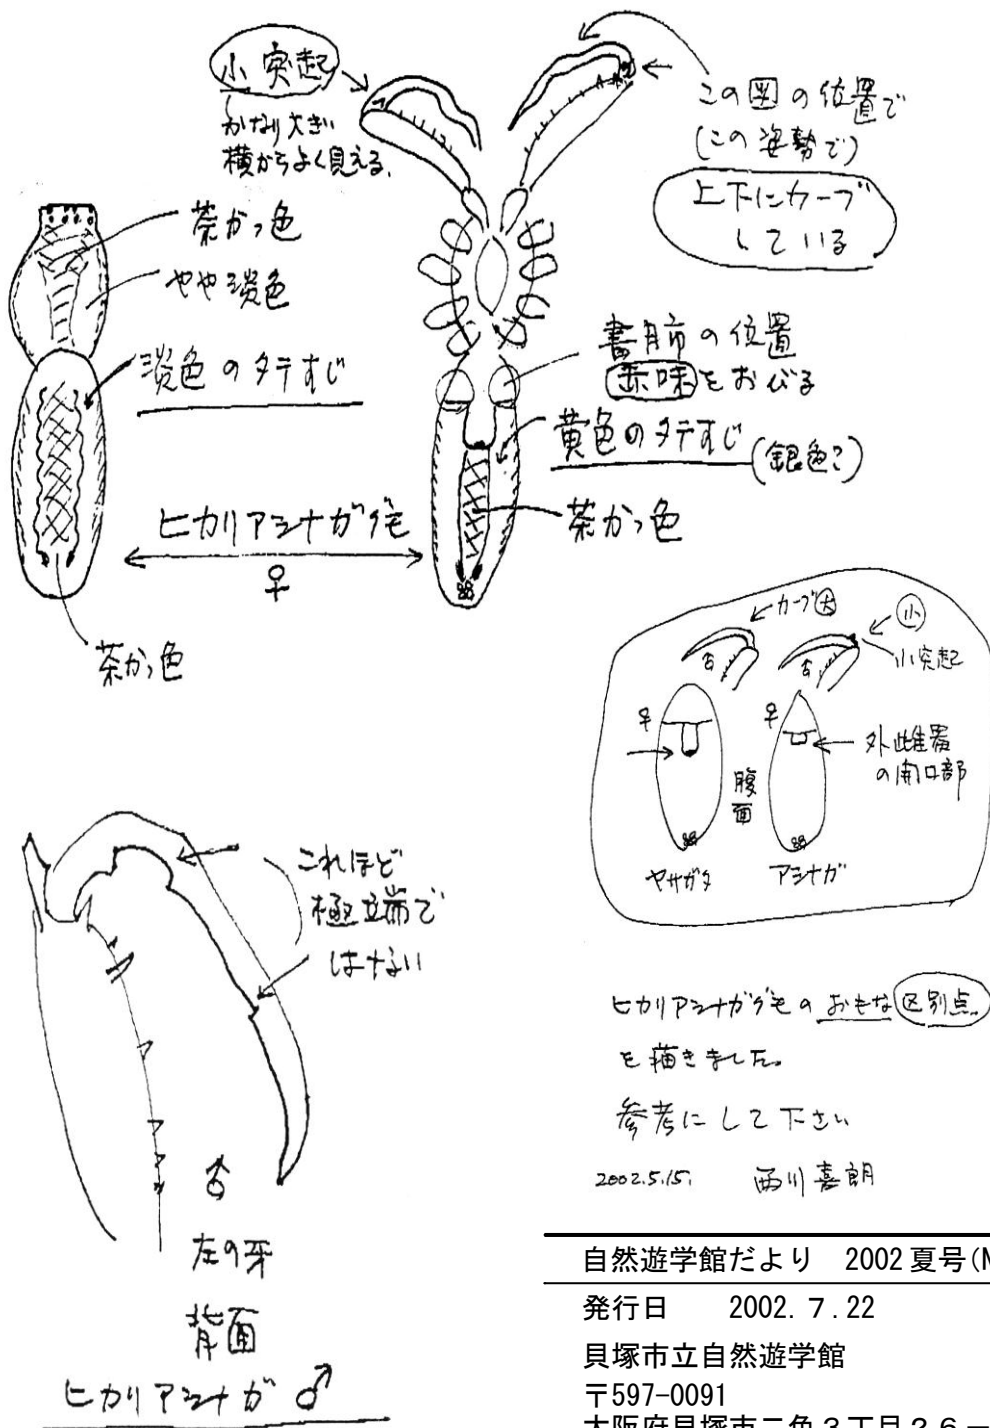 小突起
かなり大きい
横からよく見える。
この図の位置で
(この姿勢で)
上下にカーブ
している
茶かっ色
やや淡色
淡色のタテすじ
書肺の位置
赤味をおびる
黄色のタテすじ
(銀色?)
茶かっ色
ヒカリアシナガグモ
♀
茶かっ色
カーブ大
小
小突起
♂
♂
♀
♀
外雌器
の開口部
腹
面
ヤサガタ
アシナガ
これほど
極端で
はない
♂
左の牙
背面
ヒカリアシナガ ♂
ヒカリアシナガグモのおもな区別点。
を描きました。
参考にして下さい
2002.5.15. 西川喜朗
自然遊学館だより 2002夏号(N
発行日 2002.7.22
貝塚市立自然遊学館
〒597-0091
大阪府貝塚市二色3丁目26-